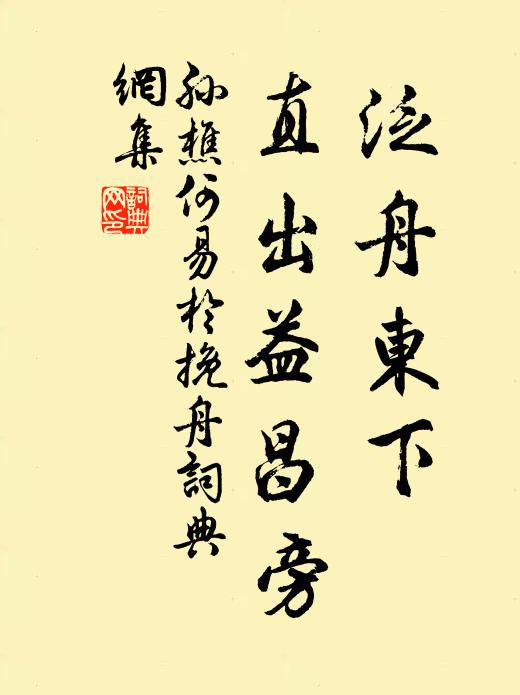 泛舟東下
直出益昌旁
孫樵何易於挽舟詞典
網集
詞典網印